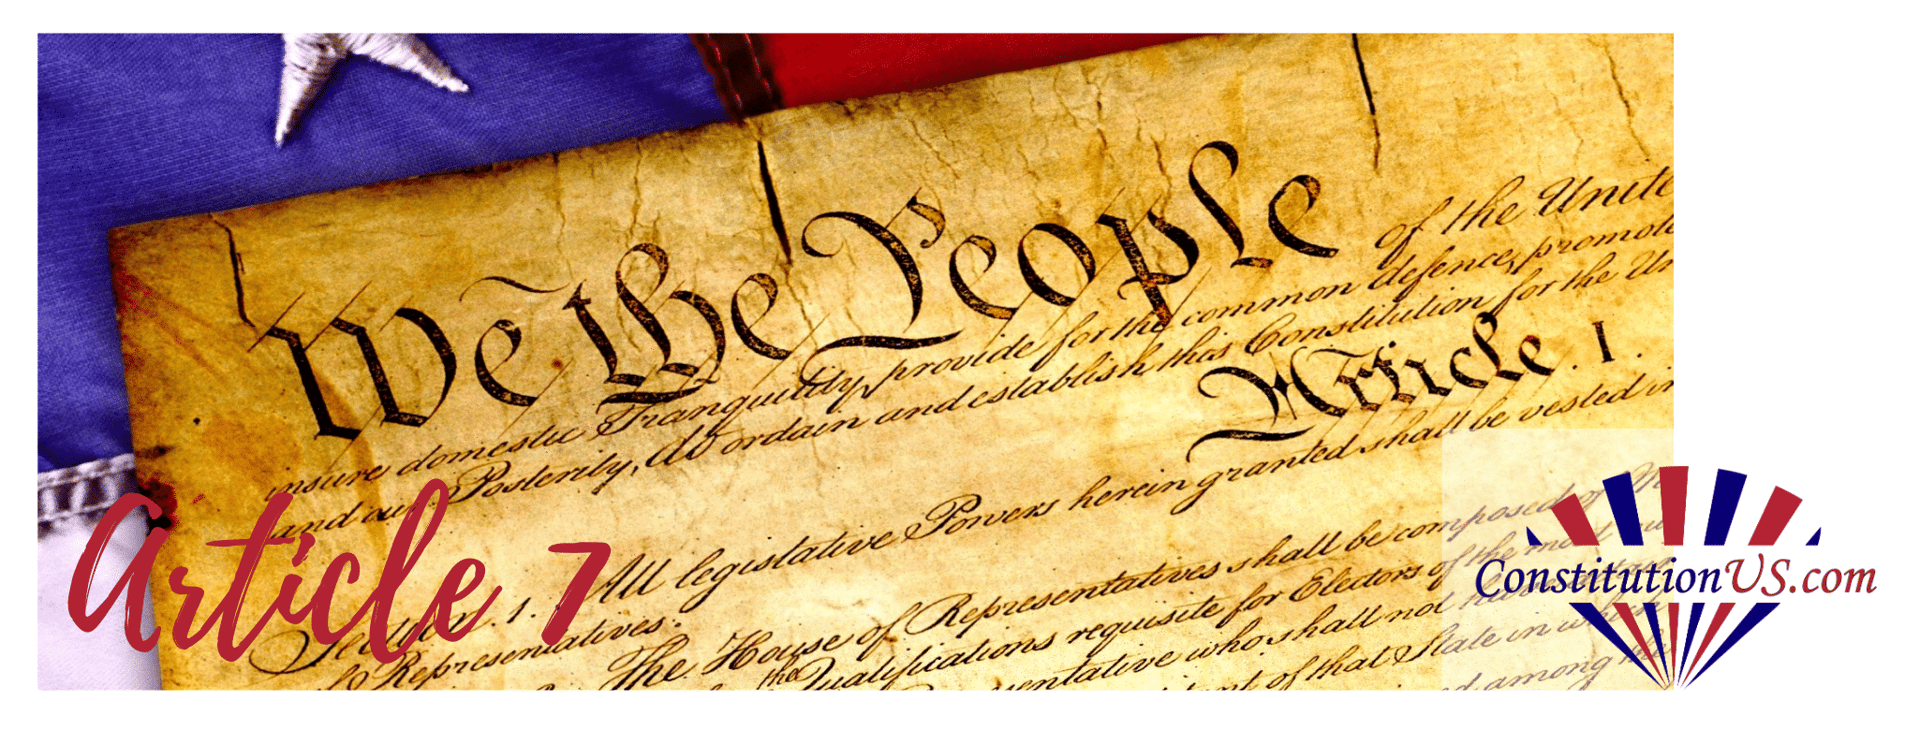 We the People
of the Unite
insure domestic Tranquility, provide for the common defence, promote
and our Posterity, do ordain and establish this Constitution for the Un
Article. I.
Section. 1. All legislative Powers herein granted shall be vested in
of Representatives.
The House of Representatives shall be composed of
the Qualifications requisite for Electors of the most
Representative who shall not
of that State in which
among the
Article 7
ConstitutionUS.com